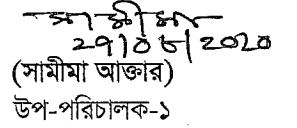 সামীমা
29/08/2020
(সামীমা আক্তার)
উপ-পরিচালক-১